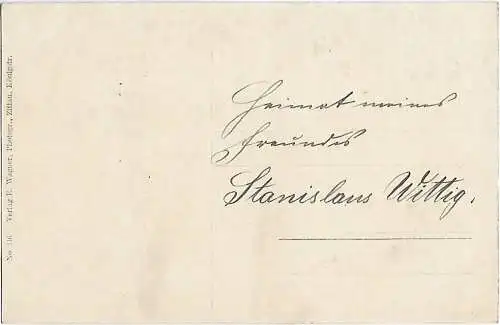 Heimat meines
Freundes
Stanislaus Wittig.
No. 116 Verlag R. Wagner, Photogr., Zittau, Königstr.